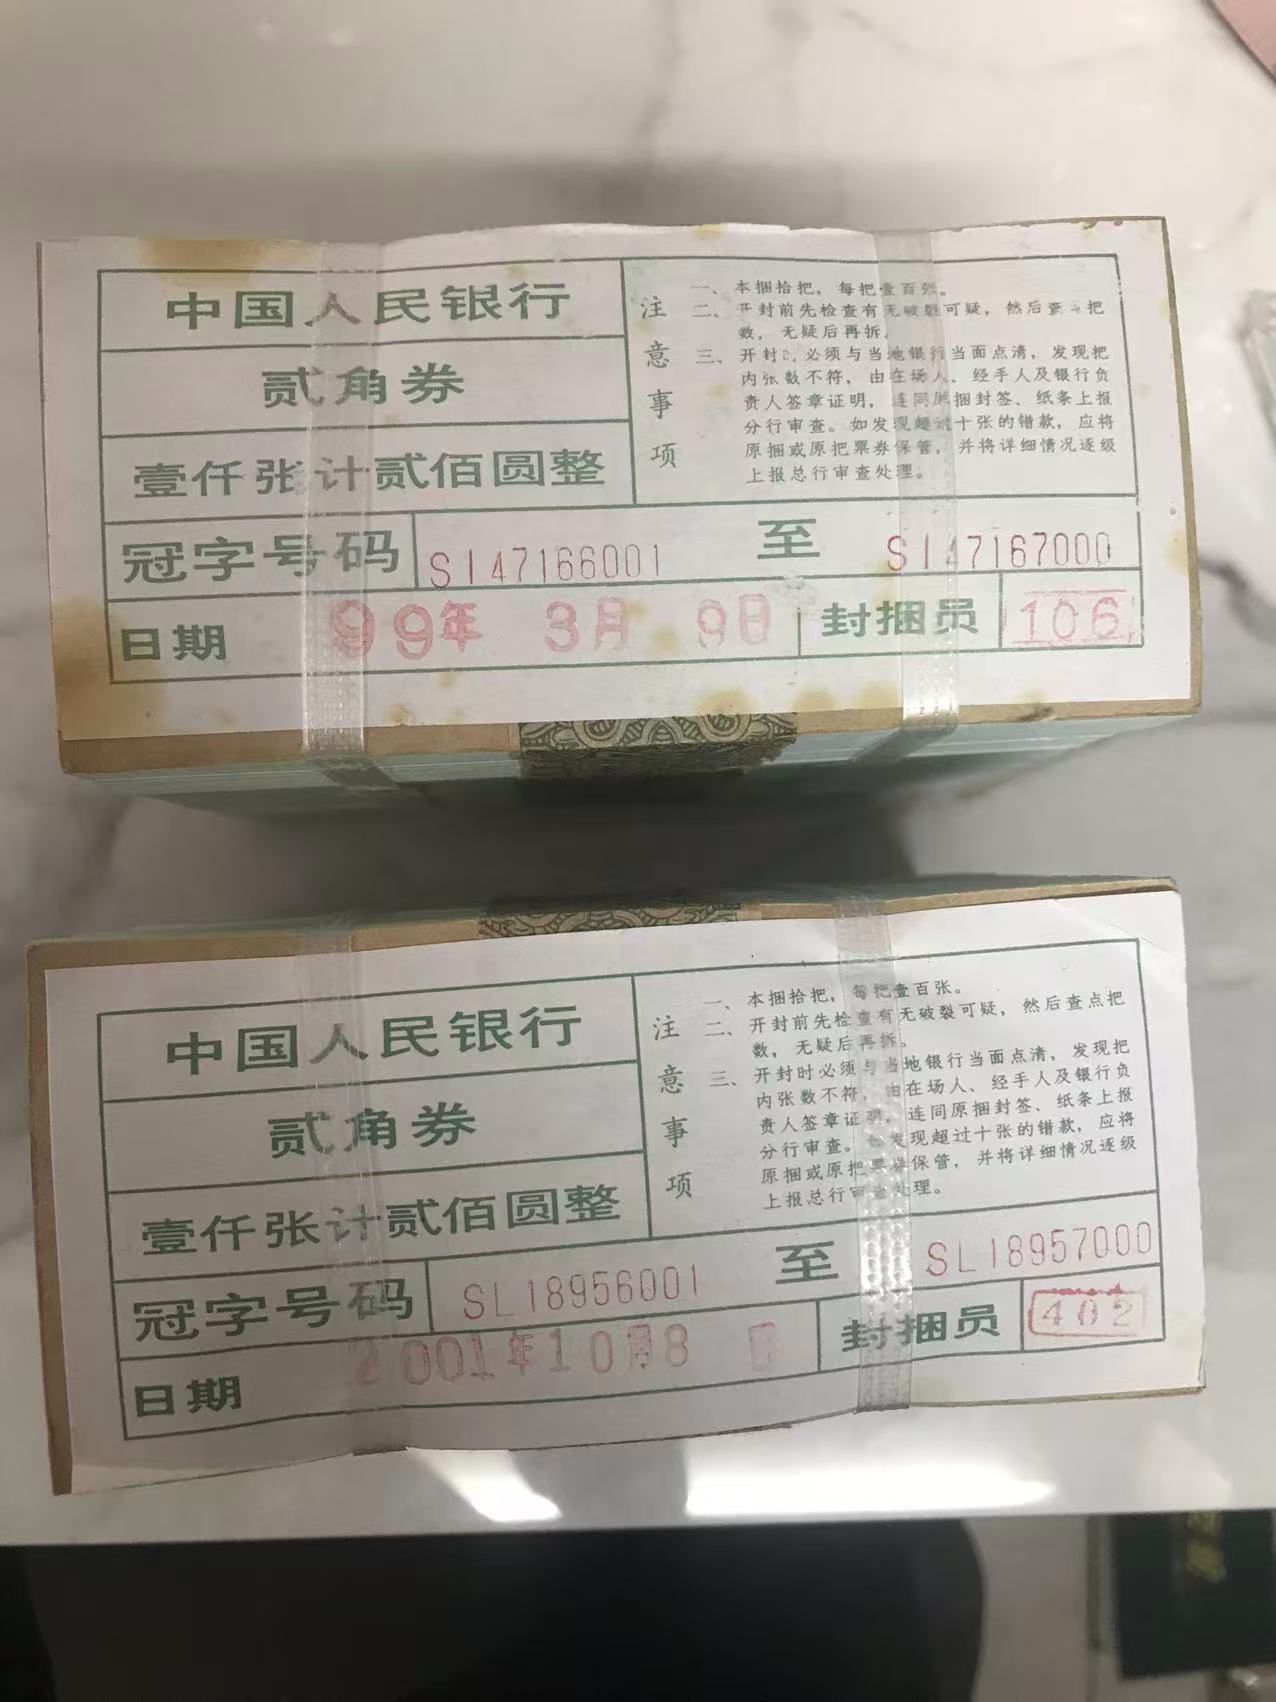 中国人民银行
贰角券
壹仟张计贰佰圆整
注意事项
一、本捆拾把，每把壹百张。
二、开封前先检查有无破裂可疑，然后查点把
数，无疑后再拆。
三、开封时必须与当地银行当面点清，发现把
内张数不符，由在场人、经手人及银行负
责人签章证明，连同原捆封签、纸条上报
分行审查。如发现超过十张的错款，应将
原捆或原把票券保管，并将详细情况逐级
上报总行审查处理。
冠字号码 SI47166001 至 SI47167000
日期 99年 3月 9日 封捆员 106
中国人民银行
贰角券
壹仟张计贰佰圆整
注意事项
一、本捆拾把，每把壹百张。
二、开封前先检查有无破裂可疑，然后查点把
数，无疑后再拆。
三、开封时必须与当地银行当面点清，发现把
内张数不符，由在场人、经手人及银行负
责人签章证明，连同原捆封签、纸条上报
分行审查。如发现超过十张的错款，应将
原捆或原把票券保管，并将详细情况逐级
上报总行审查处理。
冠字号码 SL18956001 至 SL18957000
日期 2001年10月8日 封捆员 402